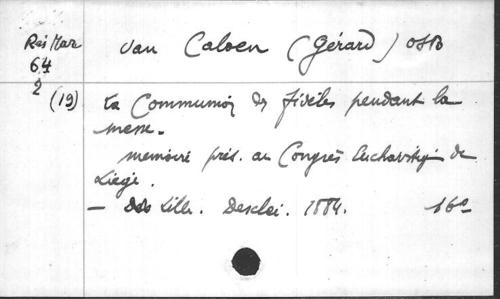 Res Mar van Caloen (Gérard) OSB
64
2
(19) La Communion des fidèles pendant la
messe.
memoire prés. au Congrès Eucharistiq. de
Liège.
— Lille. Desclée. 1884. 16°